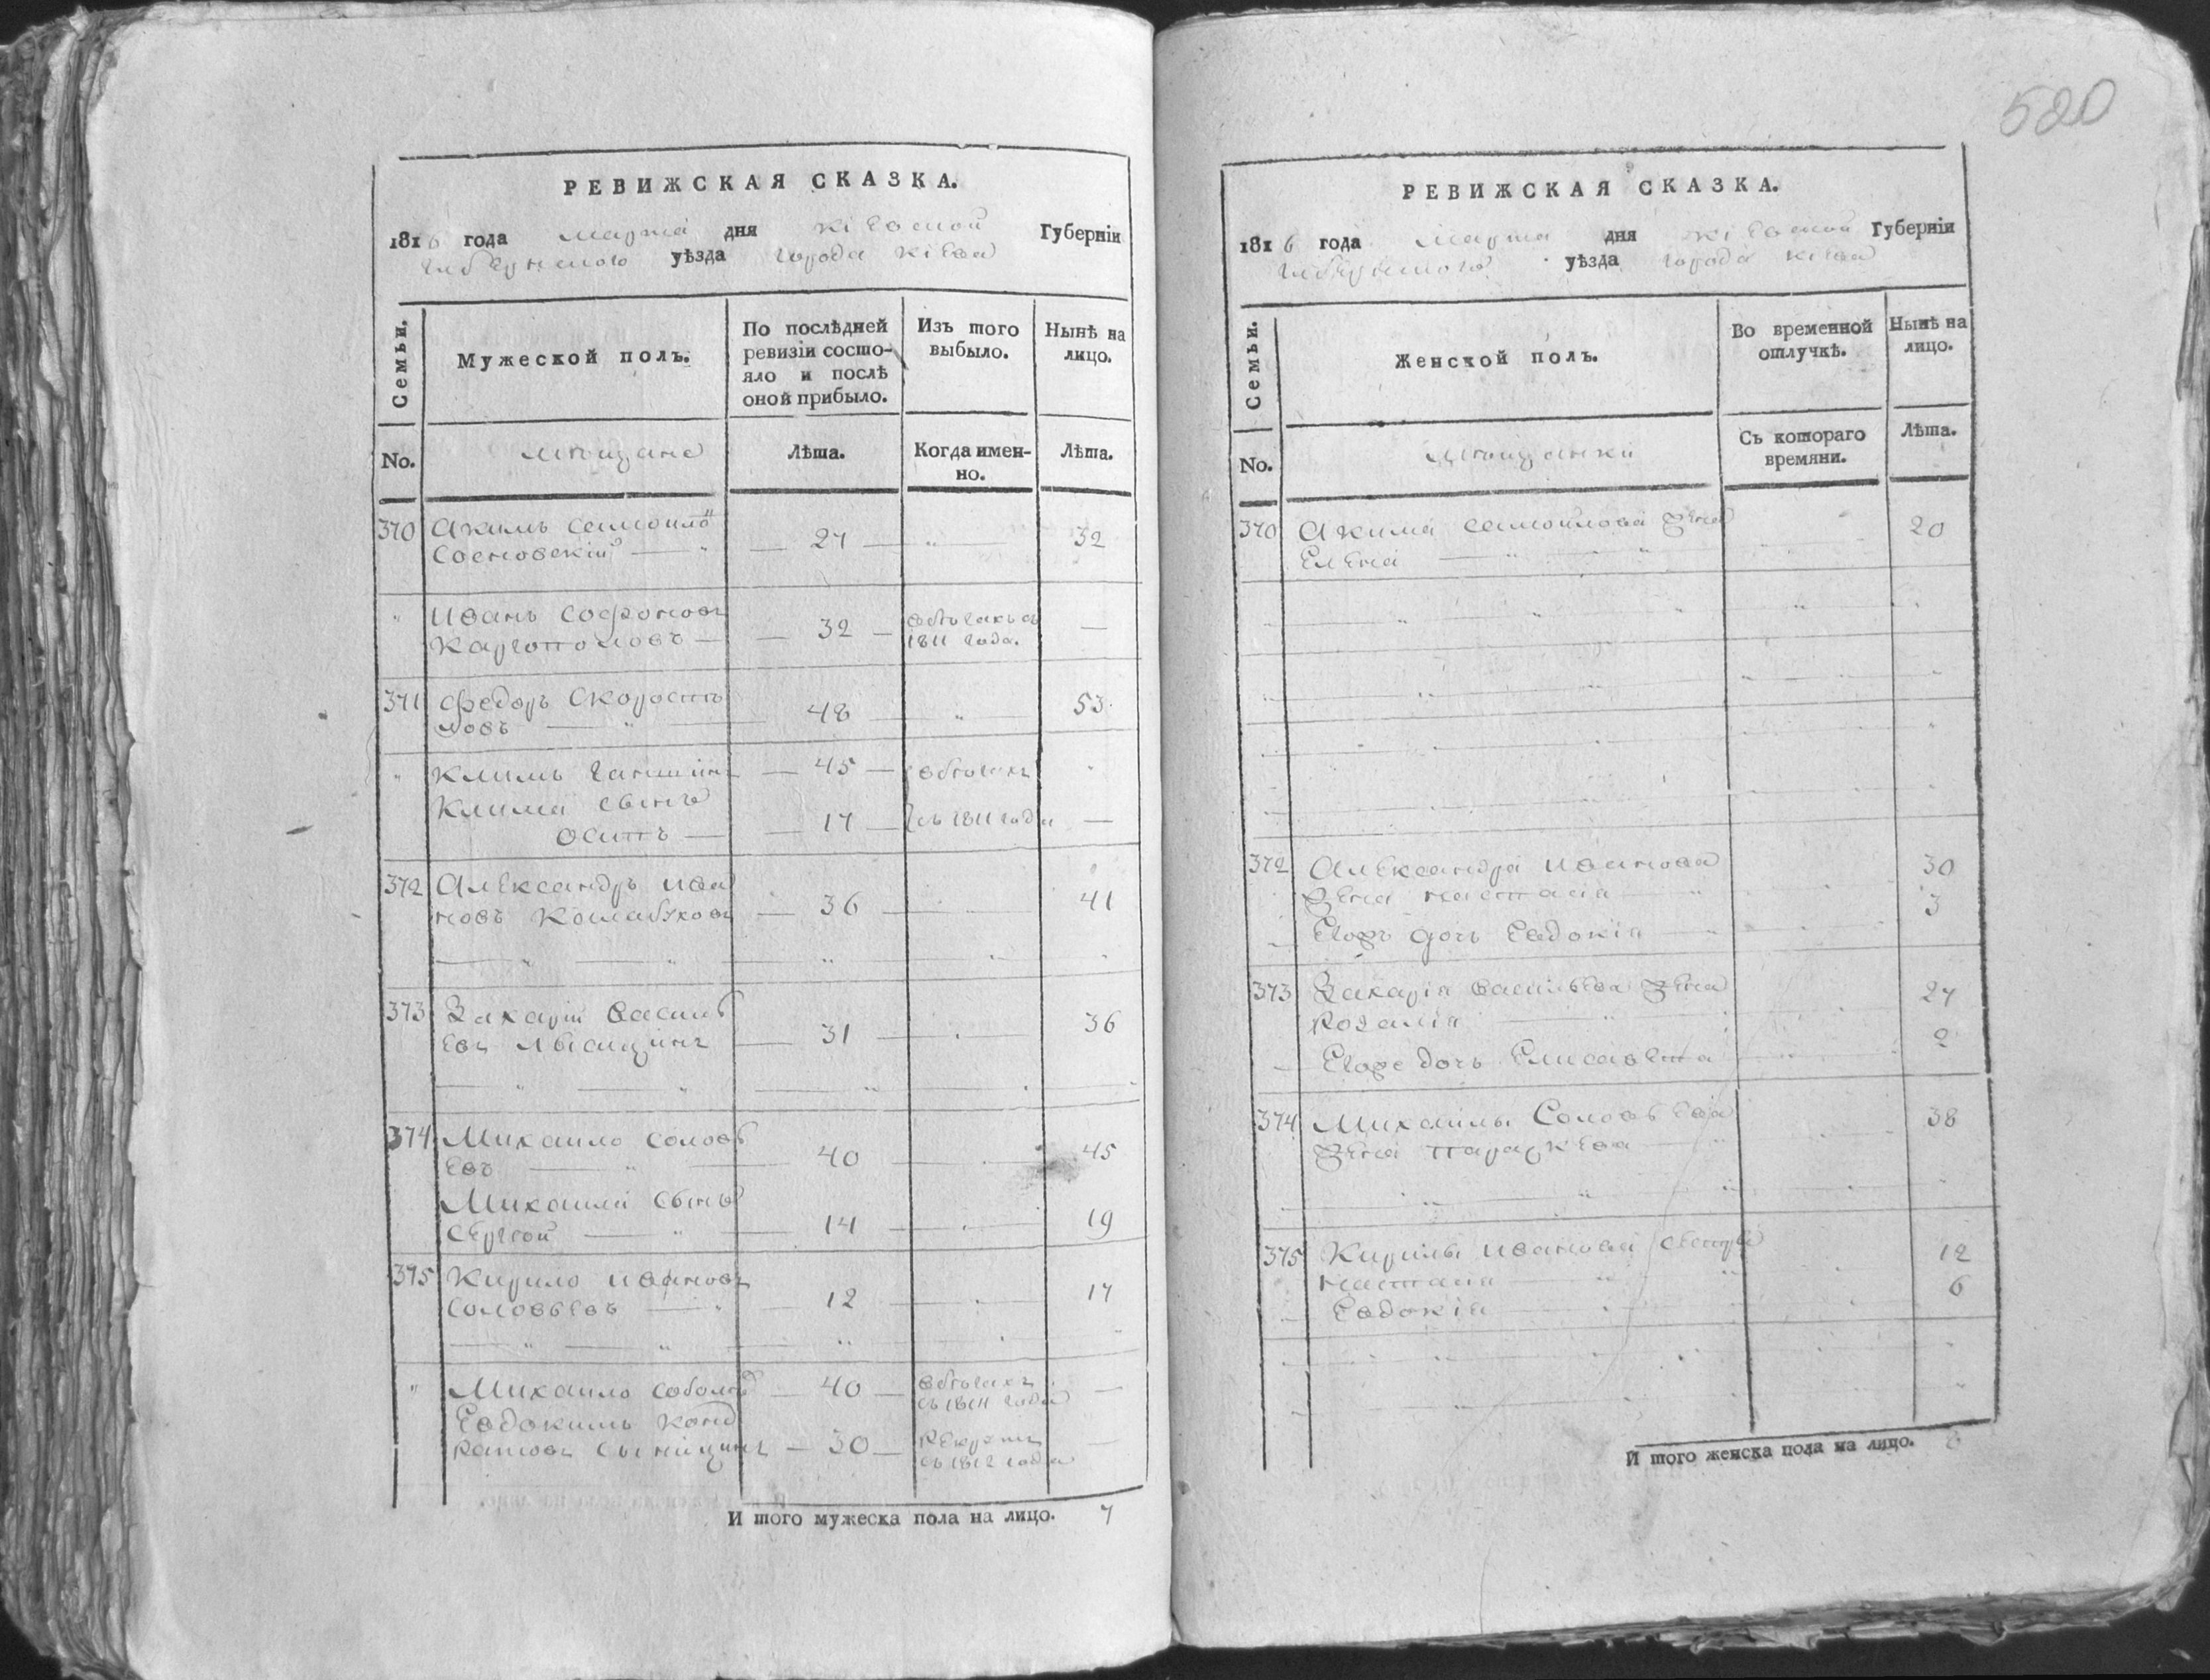 520
РЕВИЖСКАЯ СКАЗКА.
1816 года марта дня Кіевской Губерніи
уѣзда города Кіева
Семьи.
Мужеской полъ.
По послѣдней
ревизіи состо-
яло и послѣ
оной прибыло.
Изъ того
выбыло.
Нынѣ на
лицо.
No.
мѣщане
Лѣта.
Когда имен-
но.
Лѣта.
370 Акимъ Самойло
Сосновскій — 27 — " — 32
" Иванъ Софроновъ
Каргополовъ — 32 — въ бѣгахъ съ
1811 года. —
371 Федоръ Скороспѣ
ловъ — 48 — " — 53
" Климъ — 45 — въ бѣгахъ "
Клима сынъ
Осипъ — 17 — съ 1811 года —
372 Александръ Ива
новъ — 36 — 41
373 Захарій Василь
евъ — 31 — 36
374 Михайло Соловь
евъ — 40 — 45
Михайла сынъ
Сергей — 14 — 19
375 Кирило Ивановъ
Соловьевъ — 12 — 17
" Михайло — 40 — въ бѣгахъ
съ 1811 года —
Евдокимъ Конд
ратовъ — 30 — рекрутъ
съ 1812 года —
И того мужеска пола на лицо. 7
РЕВИЖСКАЯ СКАЗКА.
1816 года марта дня Кіевской Губерніи
уѣзда города Кіева
Семьи.
Женской полъ.
Во временной
отлучкѣ.
Нынѣ на
лицо.
No.
мѣщанки
Съ котораго
времяни.
Лѣта.
370 Акима Самойлова жена
Елена — 20
372 Александра Иванова
жена Настасія — 30
Егожъ дочь Евдокія — 3
373 Захарія Васильева жена
Розалія — 27
Егоже дочь Елисавета 2
374 Михайлы Соловьева 38
жена Параскева —
375 Кирилы Иванова сестры
Настасія — 12
Евдокія — 6
И того женска пола на лицо. 8